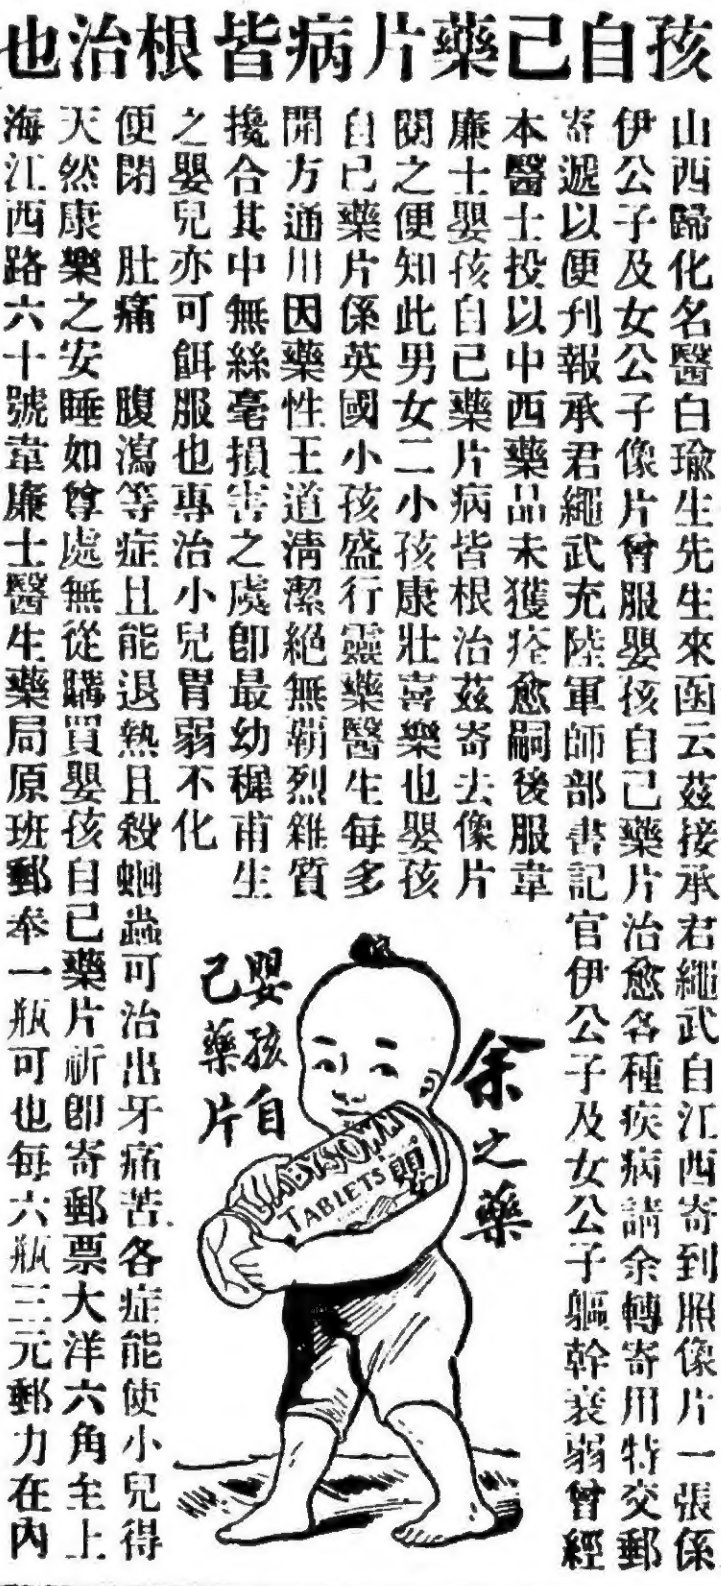 孩自己藥片病皆根治也
山西歸化名醫白瑜生先生來函云茲接承君繩武自江西寄到照像片一張係
伊公子及女公子像片曾服嬰孩自己藥片治愈各種疾病請余轉寄用特交郵
寄遞以便刋報承君繩武充陸軍師部書記官伊公子及女公子軀幹衰弱曾經
本醫士投以中西藥品未獲痊愈嗣後服韋
廉士嬰孩自己藥片病皆根治茲寄去像片
閱之便知此男女二小孩康壯喜樂也嬰孩
自己藥片係英國小孩盛行靈藥醫生每多
開方通用因藥性王道淸潔絕無霸烈雜質
攙合其中無絲毫損害之處卽最幼穉甫生
之嬰兒亦可餌服也專治小兒胃弱不化
便閉 肚痛 腹瀉等症且能退熱且殺蛔蟲可治出牙痛苦各症能使小兒得
天然康樂之安睡如尊處無從購買嬰孩自己藥片祈卽寄郵票大洋六角至上
海江西路六十號韋廉士醫生藥局原班郵奉一瓶可也每六瓶三元郵力在內
余之藥
嬰孩自
己藥片
BABY'S OWN
TABLETS